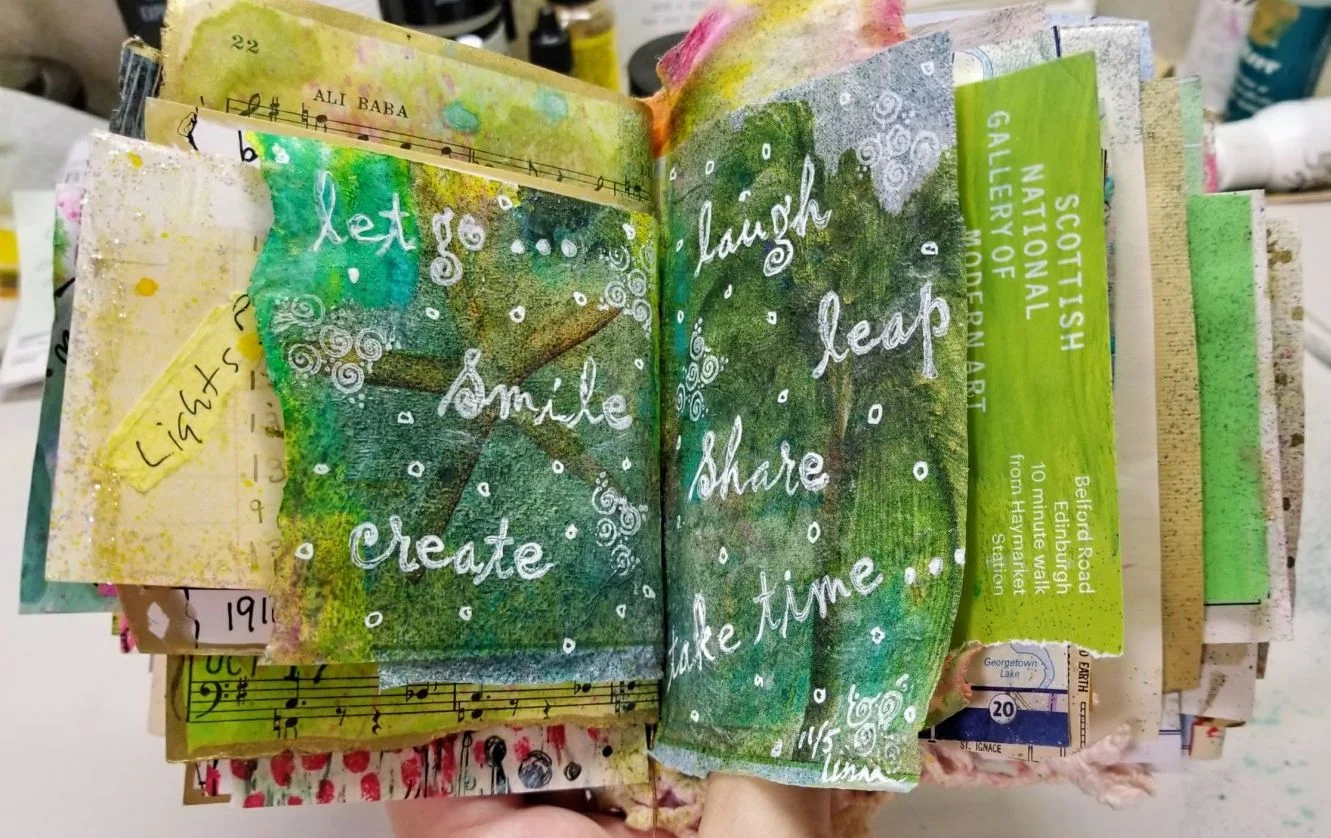 22
ALI BABA
b
let go ...
smile
create
Lights
13
9
1916
OCT
laugh
leap
share
take time ...
11/5
SCOTTISH
NATIONAL
GALLERY OF
MODERN ART
Belford Road
Edinburgh
10 minute walk
from Haymarket
Station
Georgetown
Lake
20
ST. IGNACE
D EARTH